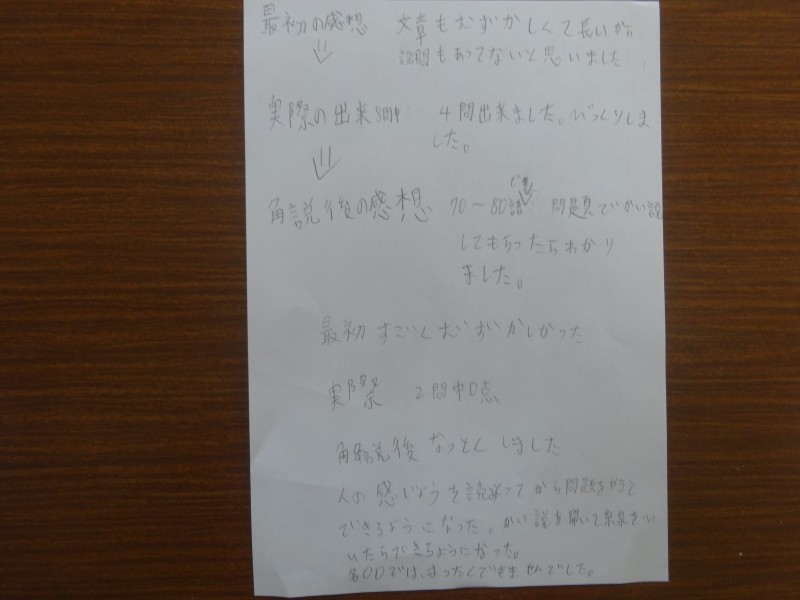 最初の感想 文章もむずかしくて長いから
設問もあってないと思いました
実際の出来 4問出来ました。びっくりしま
した。
解説後の感想 70〜80語 問題見てかい説
してもらったらわかり
ました。
最初 すごくむずかしかった
実際 2問中0点
解説後 なっとくしました
人の感じょうを読みとってから問題を
できるようになった。かい説を聞いて線をい
いたらできるようになった。
名〇〇では、まったくできませんでした。